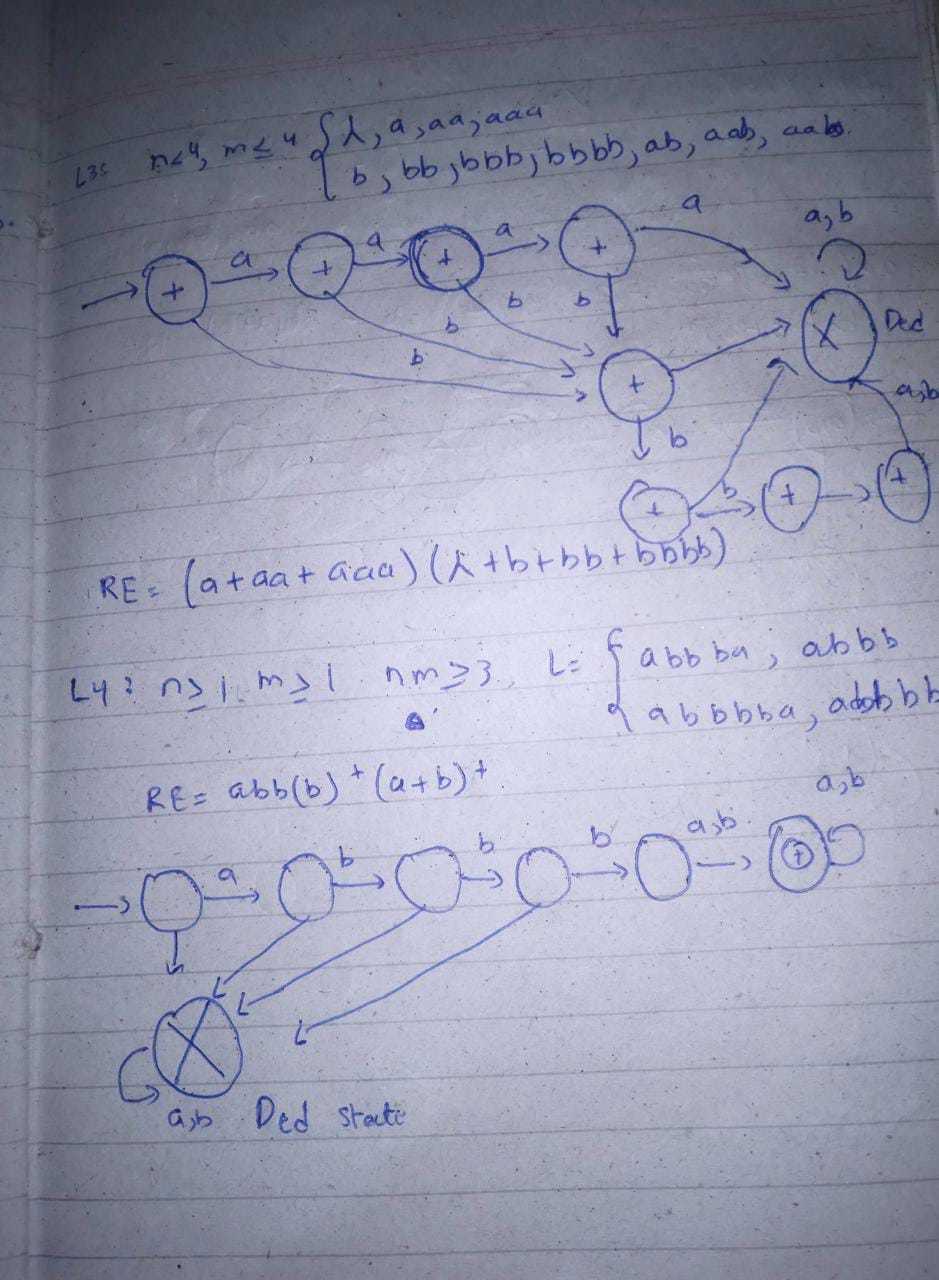 L3: n<4, m≤4 { λ, a, aa, aaa
b, bb, bbb, bbbb, ab, aab, aabb.
a
a
a
a
a,b
+
+
+
+
b
b
b
b
X
Ded
+
a,b
b
+
b
+
+
RE = (a+aa+aaa)(λ+b+bb+bbbb)
L4: n≥1 m≥1 nm≥3, L= { abbba, abbb
abbbba, abbbbb
RE= abb(b)⁺(a+b)⁺
a
b
b
b
a,b
a,b
+
X
a,b Ded state